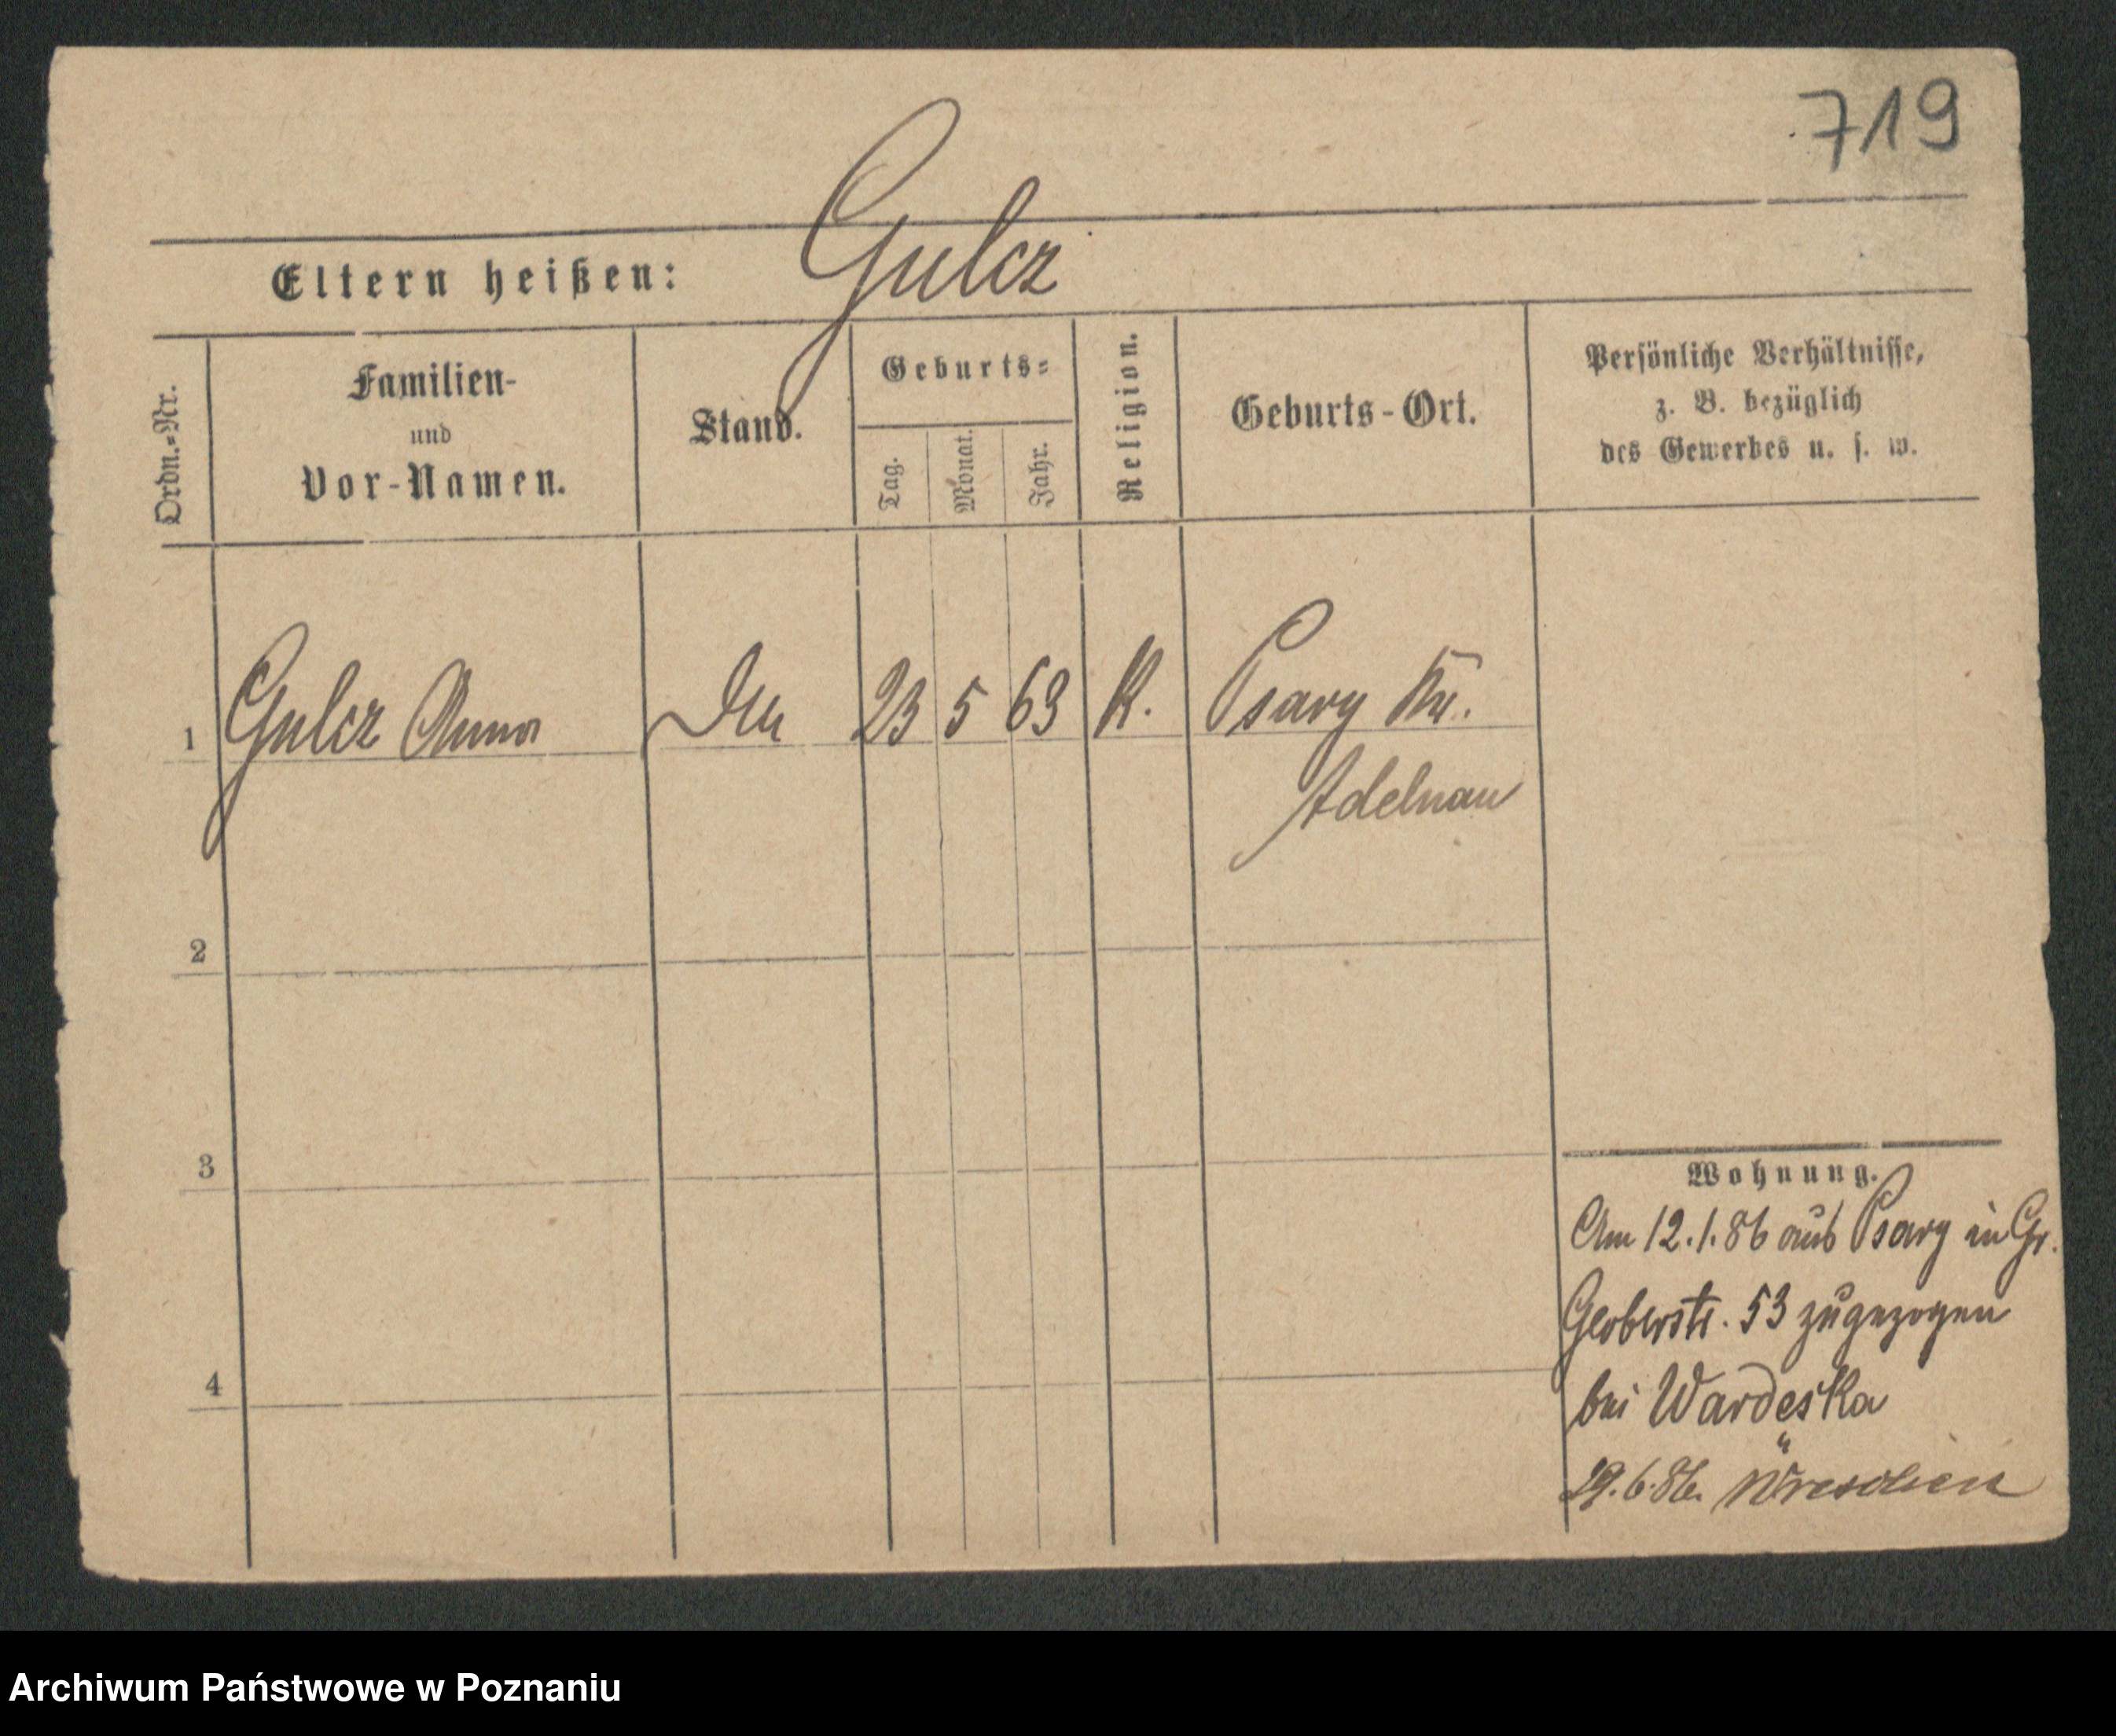 719
Eltern heißen: Gulcz
Ordn.=Nr.
Familien-
und
Vor-Namen.
Stand.
Geburts=
Tag.
Monat.
Jahr.
Religion.
Geburts-Ort.
Persönliche Verhältnisse,
z. B. bezüglich
des Gewerbes u. s. w.
1 Gulcz Anna 23 5 63 K. Psary Kr.
Adelnau
2
3
4
Wohnung.
Am 12.1.86 aus Psary in Gr.
Gerberstr. 53 zugezogen
bei Wardeska
29.6.86. Wreschen
Archiwum Państwowe w Poznaniu